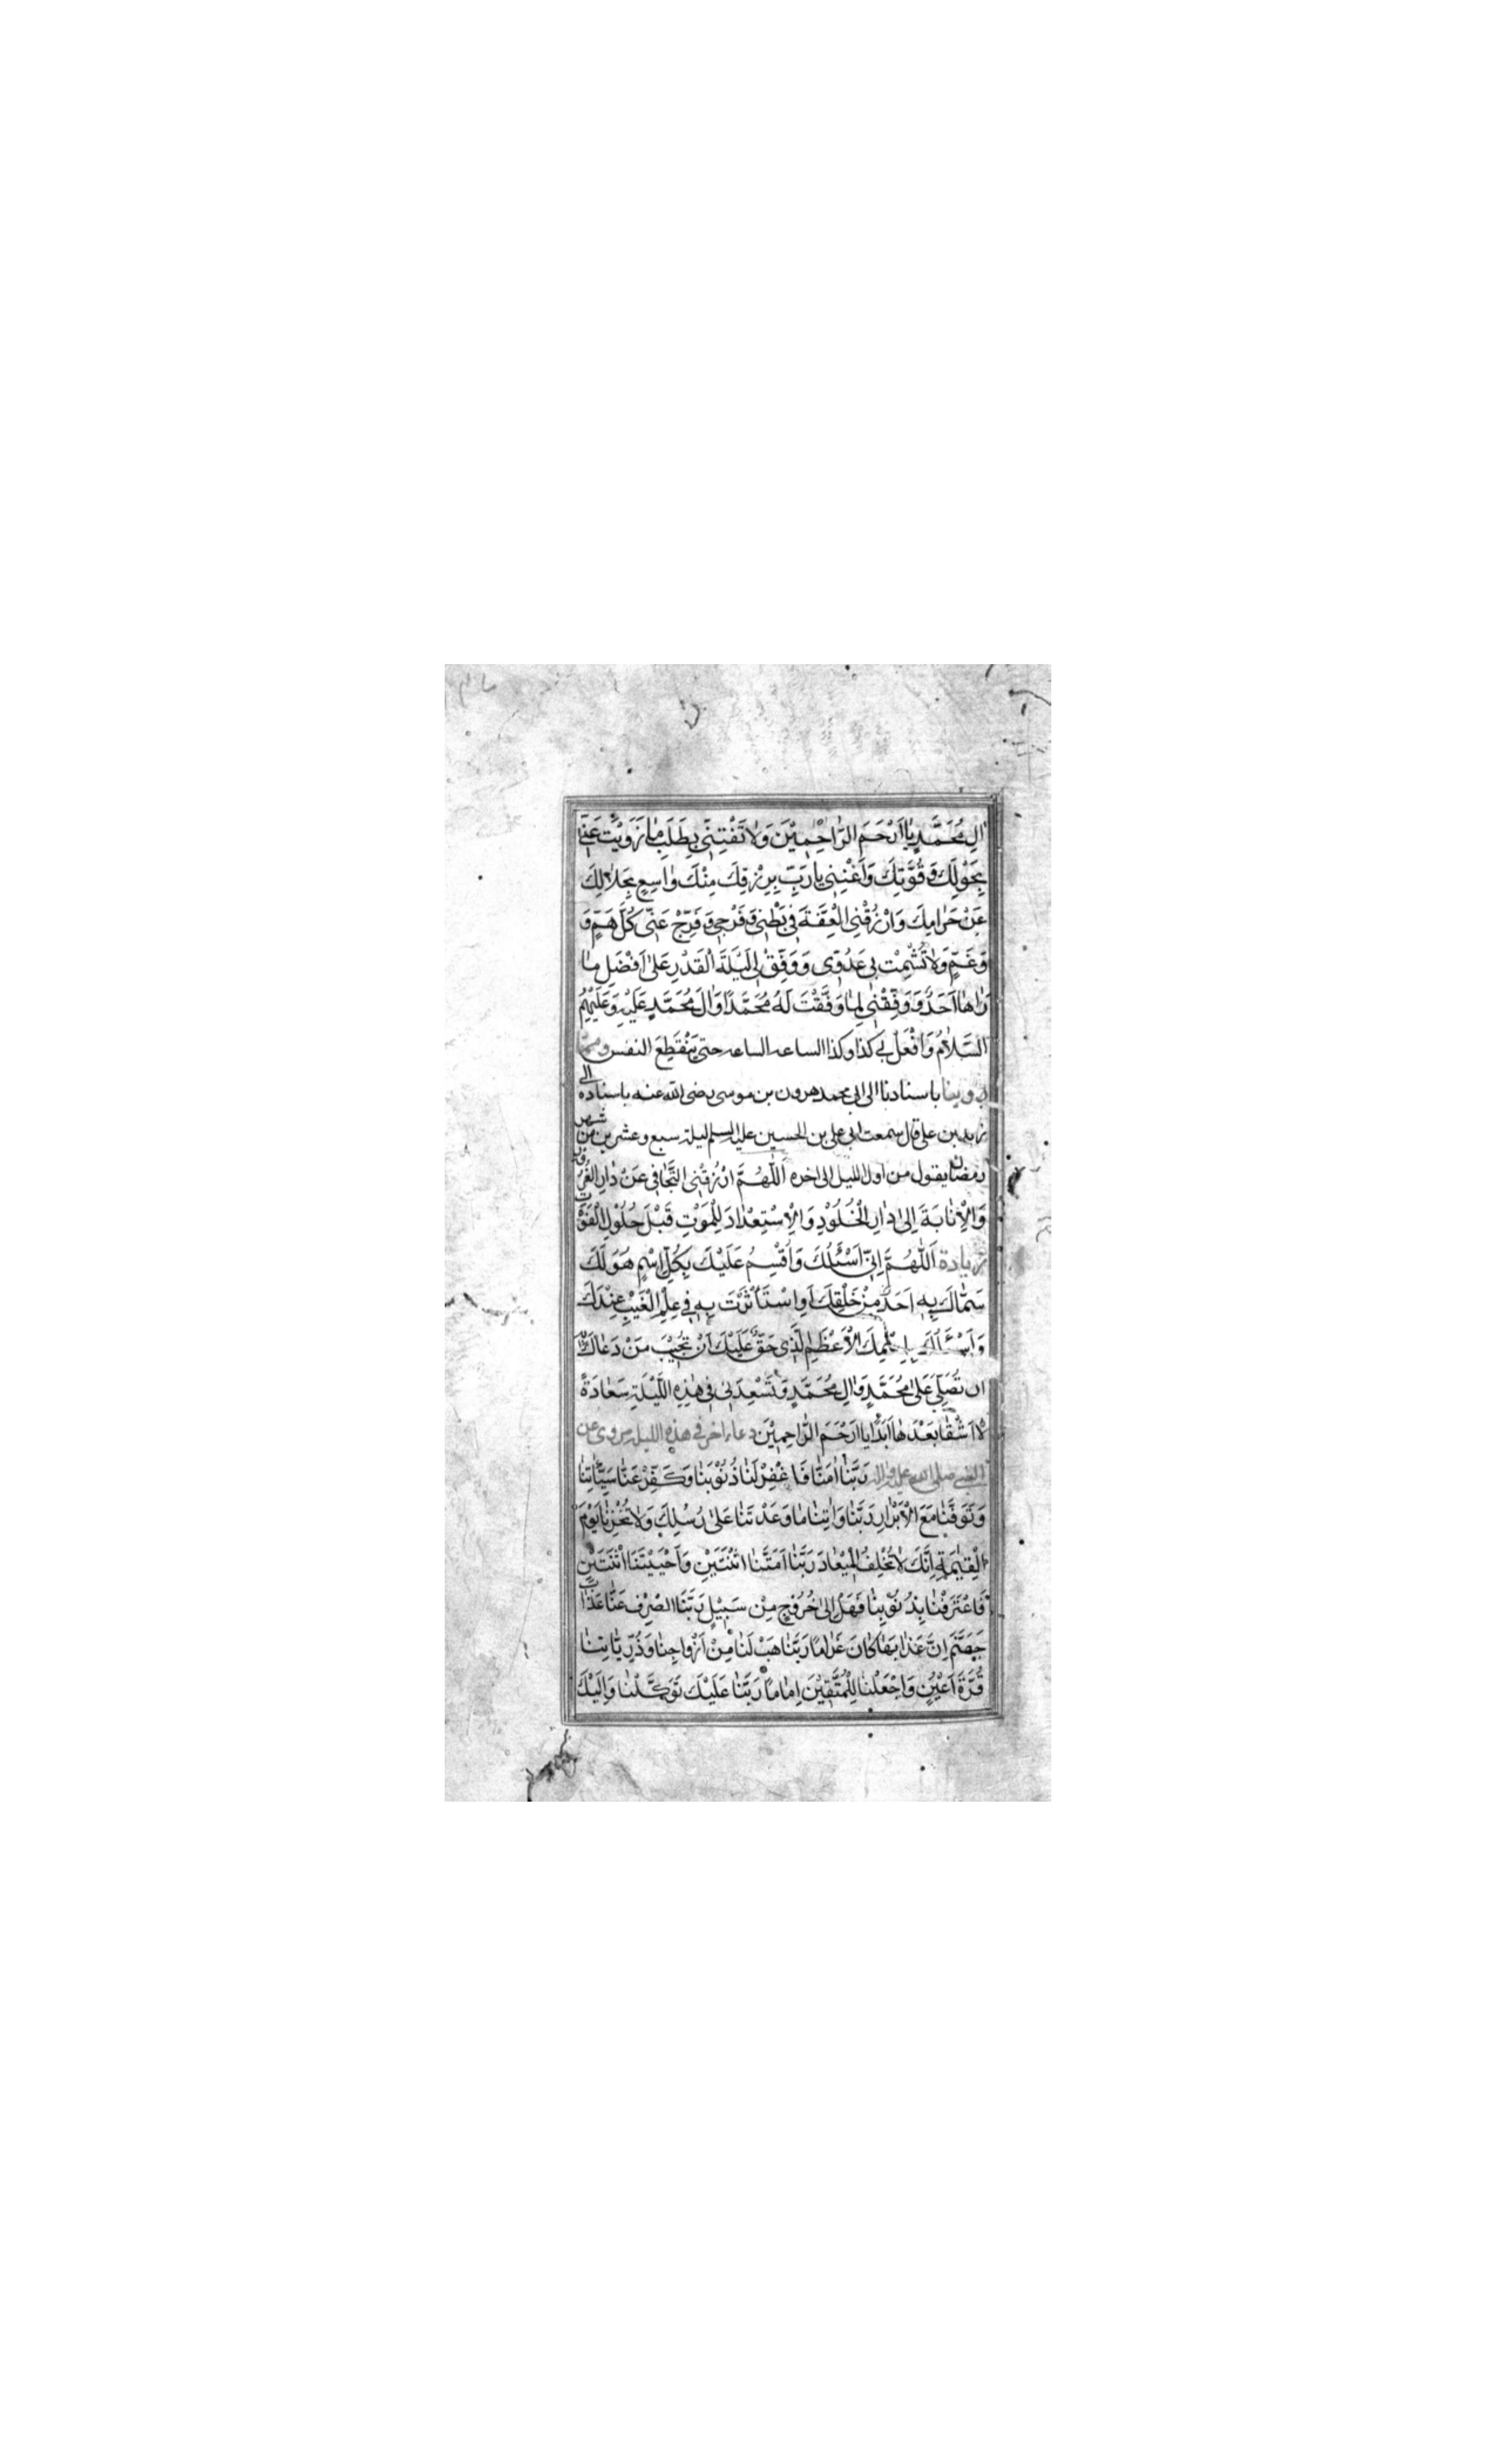 اٰلِ مُحَمَّدٍ يٰا اَرْحَمَ الرّٰاحِمِيْنَ وَلاٰ تَفْتِنّٖي بِطَلَبِ مٰا زَوَيْتَ عَنّٖي
بِحَوْلِكَ وَ قُوَّتِكَ وَ اَغْنِنِي يٰا رَبِّ بِرِزْقِكَ مِنْكَ وٰاسِعٍ بِحَلاٰلِكَ
عَنْ حَرٰامِكَ وَ ارْزُقْنِي الْعِفَّةَ فِي بَطْنِي وَ فَرْجِي وَ فَرِّجْ عَنّٖي كُلَّ هَمٍّ وَ
وَ غَمٍّ وَلاٰ تُشْمِتْ بِي عَدُوّٖي وَ وَفِّقْ لِي لَيْلَةَ الْقَدْرِ عَلىٰ اَفْضَلِ مٰا
رَاٰهٰا اَحَدٌ وَ وَفِّقْنِي لِمٰا وَفَّقْتَ لَهُ مُحَمَّدًا وَ اٰلَ مُحَمَّدٍ عَلَيْهِ وَ عَلَيْهِمُ
السَّلاٰمُ وَ افْعَلْ بِي كذا وكذا الساعه الساعه حتى يَنْقَطِعَ النفس ومما
روينا باسنادنا الى ابى محمد هرون بن موسى رضى الله عنه باسناده الى
زيد بن على قال سمعت ابى على بن الحسين عليه السلم ليلة سبع وعشرين من شهر
رمضان يقول من اول الليل الى اخره اَللّٰهُمَّ ارْزُقْنِي التَّجٰافِي عَنْ دٰارِ الْغُرُورِ
وَ الْاِنٰابَةَ اِلىٰ دٰارِ الْخُلُودِ وَ الْاِسْتِعْدٰادَ لِلْمَوْتِ قَبْلَ حُلُولِ الْفَوْتِ
زيادة اَللّٰهُمَّ اِنّٖي اَسْئَلُكَ وَ اُقْسِمُ عَلَيْكَ بِكُلِّ اسْمٍ هُوَ لَكَ
سَمّٰاكَ بِهٖ اَحَدٌ مِنْ خَلْقِكَ اَوِ اسْتَأْثَرْتَ بِهٖ فِي عِلْمِ الْغَيْبِ عِنْدَكَ
وَ اَسْئَلُكَ بِاسْمِكَ الْاَعْظَمِ الَّذِي حَقٌّ عَلَيْكَ اَنْ تُجِيْبَ مَنْ دَعٰاكَ بِهٖ
ان تُصَلِّيَ عَلىٰ مُحَمَّدٍ وَ اٰلِ مُحَمَّدٍ وَ تُسْعِدَنِي فِي هٰذِهِ اللَّيْلَةِ سَعٰادَةً
لاٰ اَشْقىٰ بَعْدَهٰا اَبَدًا يٰا اَرْحَمَ الرّٰاحِمِيْنَ دعاء اخر في هذه الليله مروى عن
النبي صلى الله عليه واله رَبَّنٰا اٰمَنّٰا فَاغْفِرْ لَنٰا ذُنُوْبَنٰا وَ كَفِّرْ عَنّٰا سَيِّئٰاتِنٰا
وَ تَوَفَّنٰا مَعَ الْاَبْرٰارِ رَبَّنٰا وَ اٰتِنٰا مٰا وَعَدْتَنٰا عَلىٰ رُسُلِكَ وَلاٰ تُخْزِنٰا يَوْمَ
الْقِيٰمَةِ اِنَّكَ لاٰ تُخْلِفُ الْمِيْعٰادَ رَبَّنٰا اَمَتَّنَا اثْنَتَيْنِ وَ اَحْيَيْتَنَا اثْنَتَيْنِ
فَاعْتَرَفْنٰا بِذُنُوْبِنٰا فَهَلْ اِلىٰ خُرُوْجٍ مِنْ سَبِيْلٍ رَبَّنَا اصْرِفْ عَنّٰا عَذٰابَ
جَهَنَّمَ اِنَّ عَذٰابَهٰا كٰانَ غَرٰامًا رَبَّنٰا هَبْ لَنٰا مِنْ اَزْوٰاجِنٰا وَ ذُرِّيّٰاتِنٰا
قُرَّةَ اَعْيُنٍ وَ اجْعَلْنٰا لِلْمُتَّقِيْنَ اِمٰامًا رَبَّنٰا عَلَيْكَ تَوَكَّلْنٰا وَ اِلَيْكَ